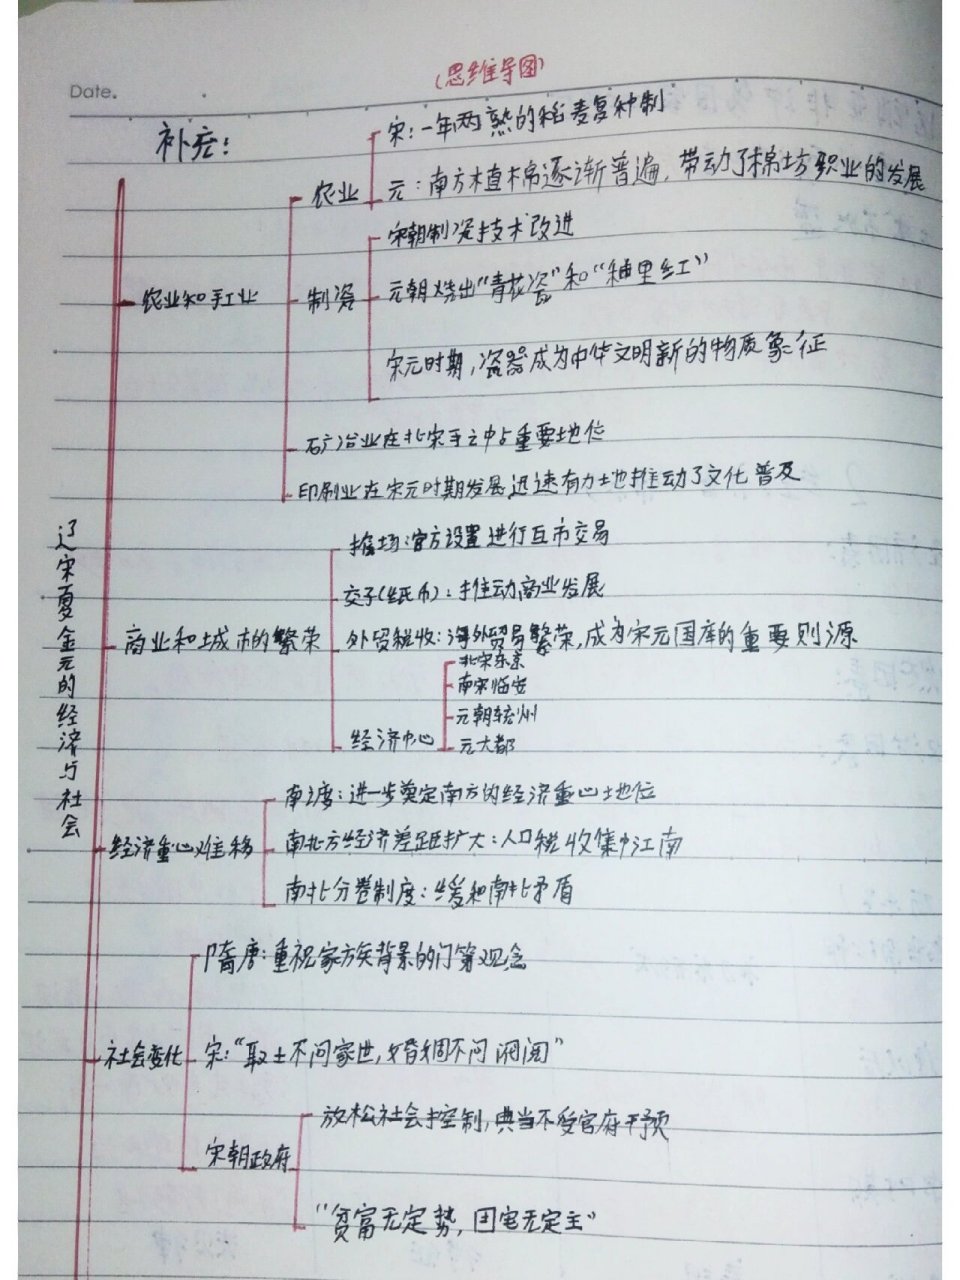 (思维导图)
Date.
补充:
宋:一年两熟的稻麦复种制
农业
元:南方植棉逐渐普遍,带动了棉坊职业的发展
宋朝制瓷技术改进
农业和手工业
制瓷
元朝烧出“青花瓷”和“釉里红”
宋元时期,瓷器成为中华文明新的物质象征
矿冶业在北宋手工中占重要地位
印刷业在宋元时期发展迅速有力地推动了文化普及
辽宋夏金元的经济与社会
榷场:官方设置进行互市交易
交子(纸币):推动商业发展
商业和城市的繁荣
外贸税收:海外贸易繁荣,成为宋元国库的重要则源
北宋东京
南宋临安
元朝杭州
经济中心
元大都
南渡:进一步奠定南方的经济重心地位
经济重心难移
南北方经济差距扩大:人口税收集中江南
南北分卷制度:缓和南北矛盾
隋唐:重视家族背景的门第观念
社会变化
宋:“取士不问家世,婚姻不问阀阅”
放松社会控制,典当不受官府干预
宋朝政府
“贫富无定势,田宅无定主”